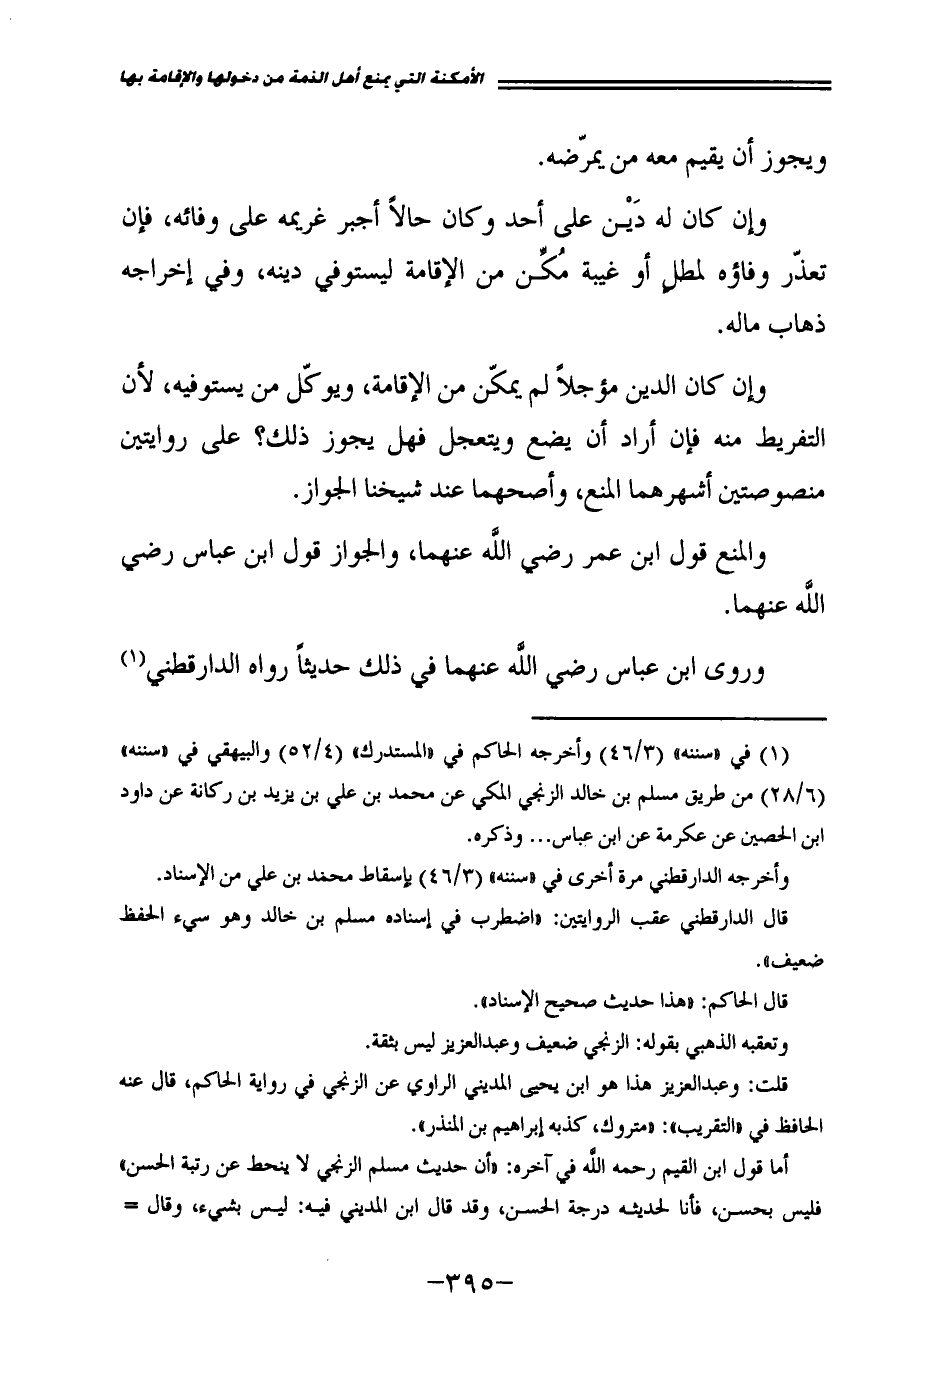 الأمكنة التي يمنع أهل الذمة من دخولها والإقامة بها
ويجوز أن يقيم معه من يمرّضه.
وإن كان له دَيْن على أحد وكان حالاً أجبر غريمه على وفائه، فإن
تعذّر وفاؤه لمطلٍ أو غيبة مُكِّن من الإقامة ليستوفي دينه، وفي إخراجه
ذهاب ماله.
وإن كان الدين مؤجلاً لم يمكّن من الإقامة، ويوكّل من يستوفيه، لأن
التفريط منه فإن أراد أن يضع ويتعجل فهل يجوز ذلك؟ على روايتين
منصوصتين أشهرهما المنع، وأصحهما عند شيخنا الجواز.
والمنع قول ابن عمر رضي اللَّه عنهما، والجواز قول ابن عباس رضي
اللَّه عنهما.
وروى ابن عباس رضي اللَّه عنهما في ذلك حديثاً رواه الدارقطني(١)
(١) في «سننه» (٤٦/٣) وأخرجه الحاكم في «المستدرك» (٥٢/٤) والبيهقي في «سننه»
(٢٨/٦) من طريق مسلم بن خالد الزنجي المكي عن محمد بن علي بن يزيد بن ركانة عن داود
ابن الحصين عن عكرمة عن ابن عباس... وذكره.
وأخرجه الدارقطني مرة أخرى في «سننه» (٤٦/٣) بإسقاط محمد بن علي من الإسناد.
قال الدارقطني عقب الروايتين: «اضطرب في إسناده مسلم بن خالد وهو سيء الحفظ
ضعيف».
قال الحاكم: «هذا حديث صحيح الإسناد».
وتعقبه الذهبي بقوله: الزنجي ضعيف وعبدالعزيز ليس بثقة.
قلت: وعبدالعزيز هذا هو ابن يحيى المديني الراوي عن الزنجي في رواية الحاكم، قال عنه
الحافظ في «التقريب»: «متروك، كذبه إبراهيم بن المنذر».
أما قول ابن القيم رحمه اللَّه في آخره: «أن حديث مسلم الزنجي لا ينحط عن رتبة الحسن»
فليس بحسن، فأنا لحديثه درجة الحسن، وقد قال ابن المديني فيه: ليس بشيء، وقال =
–٣٩٥–